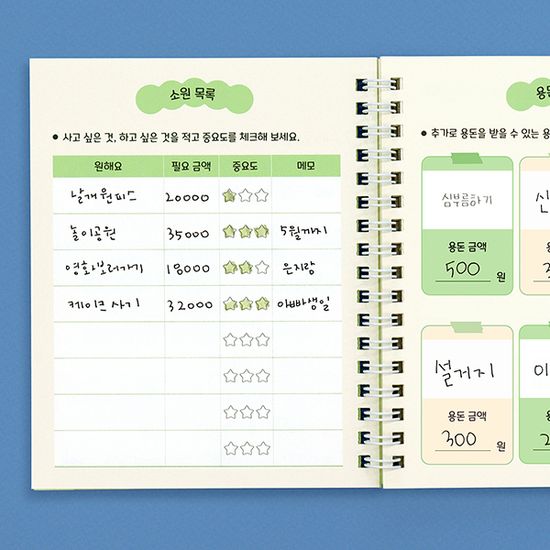 소원 목록
● 사고 싶은 것, 하고 싶은 것을 적고 중요도를 체크해 보세요.
원해요 필요 금액 중요도 메모
날개원피스 20000
놀이공원 35000 5월까지
영화보러가기 18000 은지랑
케이크 사기 32000 아빠생일
용돈
● 추가로 용돈을 받을 수 있는 용
심부름하기
용돈 금액
500 원
설거지
용돈 금액
300 원